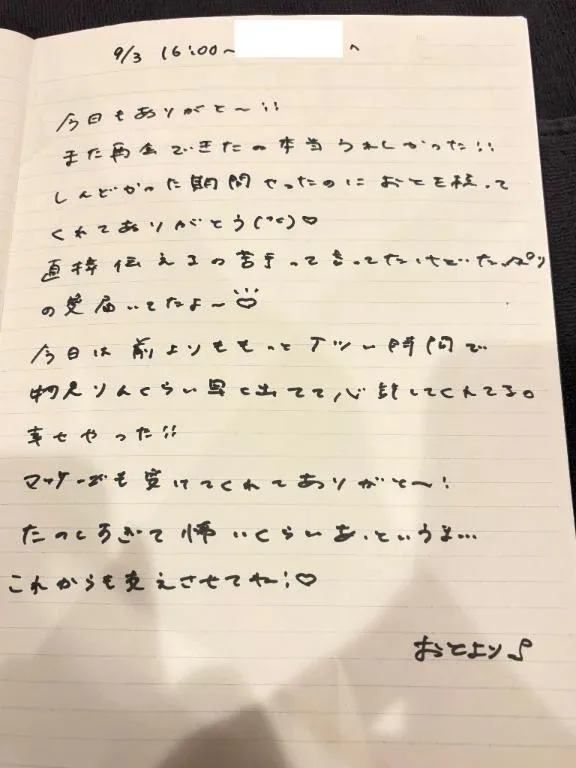 9/3 16:00~ へ
今日もありがと〜!!
また再会できたの本当うれしかった!!
しんどかった期間やったのにおとを
くれてありがとう ♡
直接伝えるの苦手って言ってたけど
の愛届いてたよ〜♡
今日は前よりももっとアツい時間で
くらい 出てて心 してくれてる。
幸せやった!!
マッサージも受けてくれてありがと〜!
たのしすぎて怖いくらいあっというま…
これからも支えさせてね!♡
おとより♪